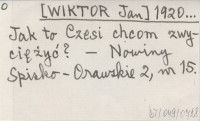 [WIKTOR Jan] 1920...
Jak to Czesi chcom zwy-
ciężyć? – Nowiny
Spisko-Orawskie 2, nr 15.